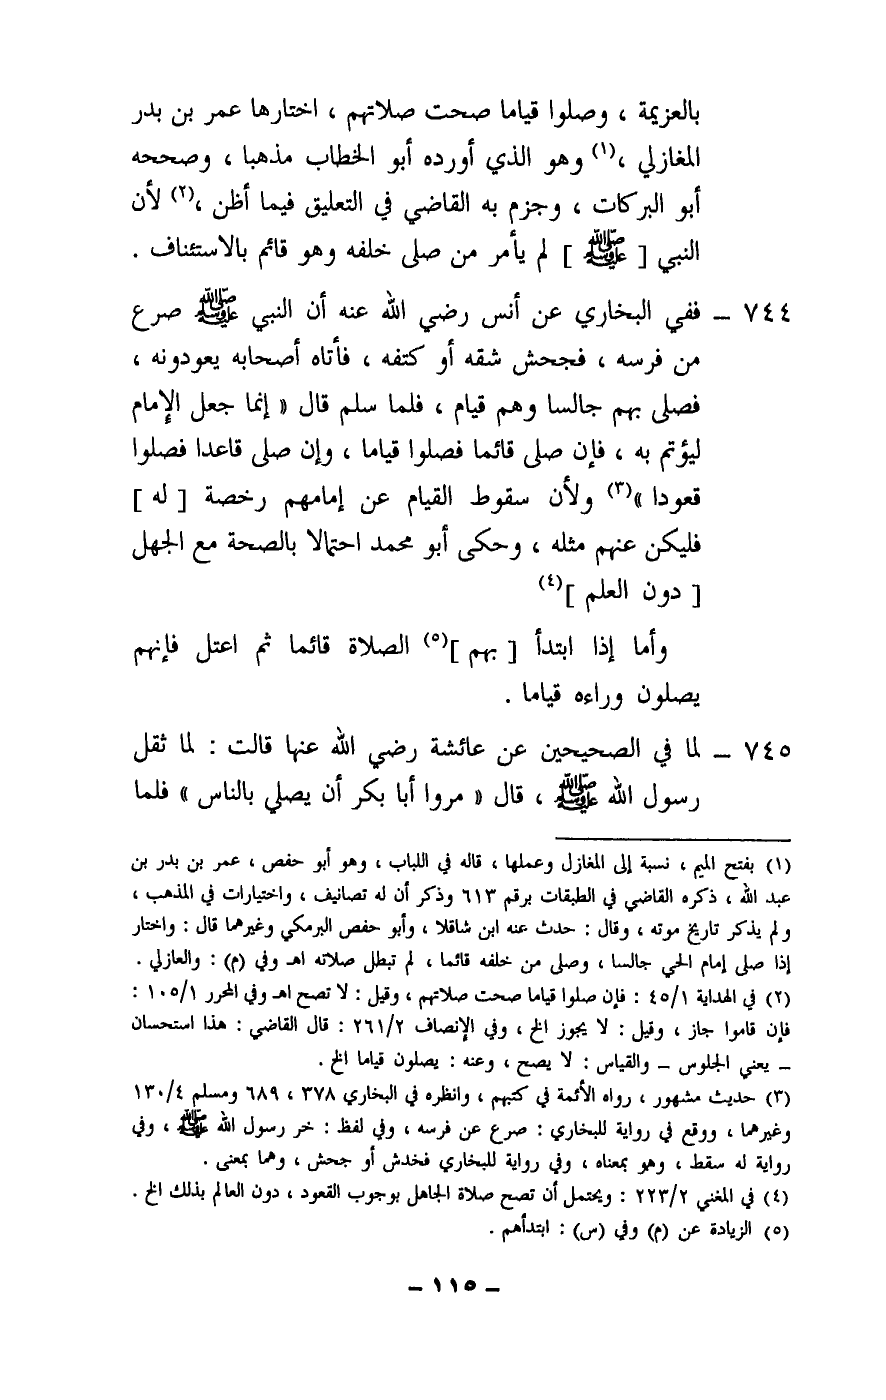 بالعزيمة ، وصلوا قياما صحت صلاتهم ، اختارها عمر بن بدر
المغازلي ،(١) وهو الذي أورده أبو الخطاب مذهبا ، وصححه
أبو البركات ، وجزم به القاضي في التعليق فيما أظن ،(٢) لأن
النبي [ ﷺ ] لم يأمر من صلى خلفه وهو قائم بالاستئناف .
٧٤٤ – ففي البخاري عن أنس رضي الله عنه أن النبي ﷺ صرع
من فرسه ، فجحش شقه أو كتفه ، فأتاه أصحابه يعودونه ،
فصلى بهم جالسا وهم قيام ، فلما سلم قال « إنما جعل الإمام
ليؤتم به ، فإن صلى قائما فصلوا قياما ، وإن صلى قاعدا فصلوا
قعودا »(٣) ولأن سقوط القيام عن إمامهم رخصة [ له ]
فليكن عنهم مثله ، وحكى أبو محمد احتمالا بالصحة مع الجهل
[ دون العلم ](٤)
وأما إذا ابتدأ [ بهم ](٥) الصلاة قائما ثم اعتل فإنهم
يصلون وراءه قياما .
٧٤٥ – لما في الصحيحين عن عائشة رضي الله عنها قالت : لما ثقل
رسول الله ﷺ ، قال « مروا أبا بكر أن يصلي بالناس » فلما
(١) بفتح الميم ، نسبة إلى المغازل وعملها ، قاله في اللباب ، وهو أبو حفص ، عمر بن بدر بن
عبد الله ، ذكره القاضي في الطبقات برقم ٦١٣ وذكر أن له تصانيف ، واختيارات في المذهب ،
ولم يذكر تاريخ موته ، وقال : حدث عنه ابن شاقلا ، وأبو حفص البرمكي وغيرهما قال : واختار
إذا صلى إمام الحي جالسا ، وصلى من خلفه قائما ، لم تبطل صلاته اهـ وفي (م) : والعازلي .
(٢) في الهداية ٤٥/١ : فإن صلوا قياما صحت صلاتهم ، وقيل : لا تصح اهـ وفي المحرر ١٠٥/١ :
فإن قاموا جاز ، وقيل : لا يجوز الخ ، وفي الإنصاف ٢٦١/٢ : قال القاضي : هذا استحسان
– يعني الجلوس – والقياس : لا يصح ، وعنه : يصلون قياما الخ .
(٣) حديث مشهور ، رواه الأئمة في كتبهم ، وانظره في البخاري ٣٧٨ ، ٦٨٩ ومسلم ١٣٠/٤
وغيرهما ، ووقع في رواية للبخاري : صرع عن فرسه ، وفي لفظ : خر رسول الله ﷺ ، وفي
رواية له سقط ، وهو بمعناه ، وفي رواية للبخاري فخدش أو جحش ، وهما بمعنى .
(٤) في المغني ٢٢٣/٢ : ويحتمل أن تصح صلاة الجاهل بوجوب القعود ، دون العالم بذلك الخ .
(٥) الزيادة عن (م) وفي (س) : ابتدأهم .
– ١١٥ –